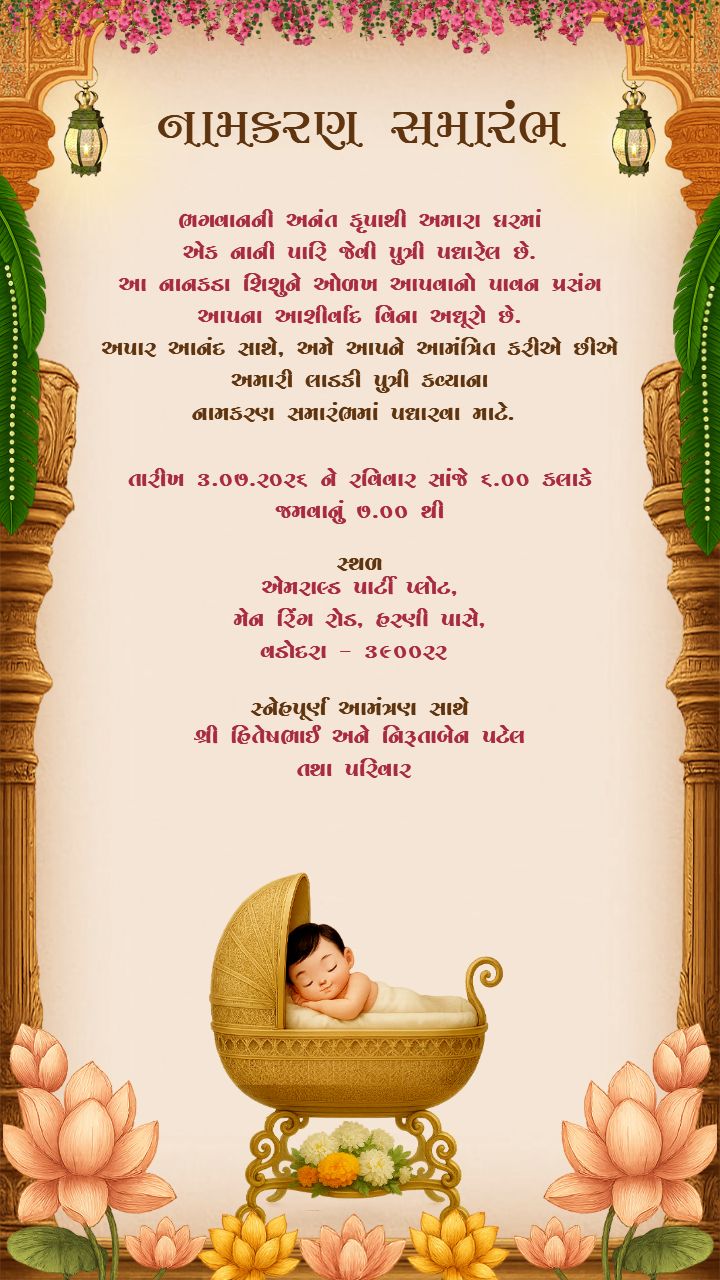 નામકરણ સમારંભ
ભગવાનની અનંત કૃપાથી અમારા ઘરમાં
એક નાની પારિ જેવી પુત્રી પધારેલ છે.
આ નાનકડા શિશુને ઓળખ આપવાનો પાવન પ્રસંગ
આપના આશીર્વાદ વિના અધૂરો છે.
અપાર આનંદ સાથે, અમે આપને આમંત્રિત કરીએ છીએ
અમારી લાડકી પુત્રી કવ્યાના
નામકરણ સમારંભમાં પધારવા માટે.
તારીખ ૩.૦૭.૨૦૨૬ ને રવિવાર સાંજે ૬.૦૦ કલાકે
જમવાનું ૭.૦૦ થી
સ્થળ
એમરાલ્ડ પાર્ટી પ્લોટ,
મેન રિંગ રોડ, હરણી પાસે,
વડોદરા - ૩૯૦૦૨૨
સ્નેહપૂર્ણ આમંત્રણ સાથે
શ્રી હિતેષભાઈ અને નિરૂતાબેન પટેલ
તથા પરિવાર